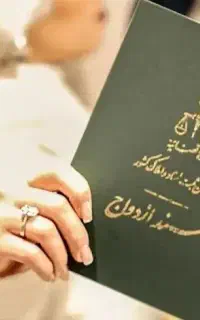 قضائیه
ثبت اسناد و املاک کشور
سند ازدواج